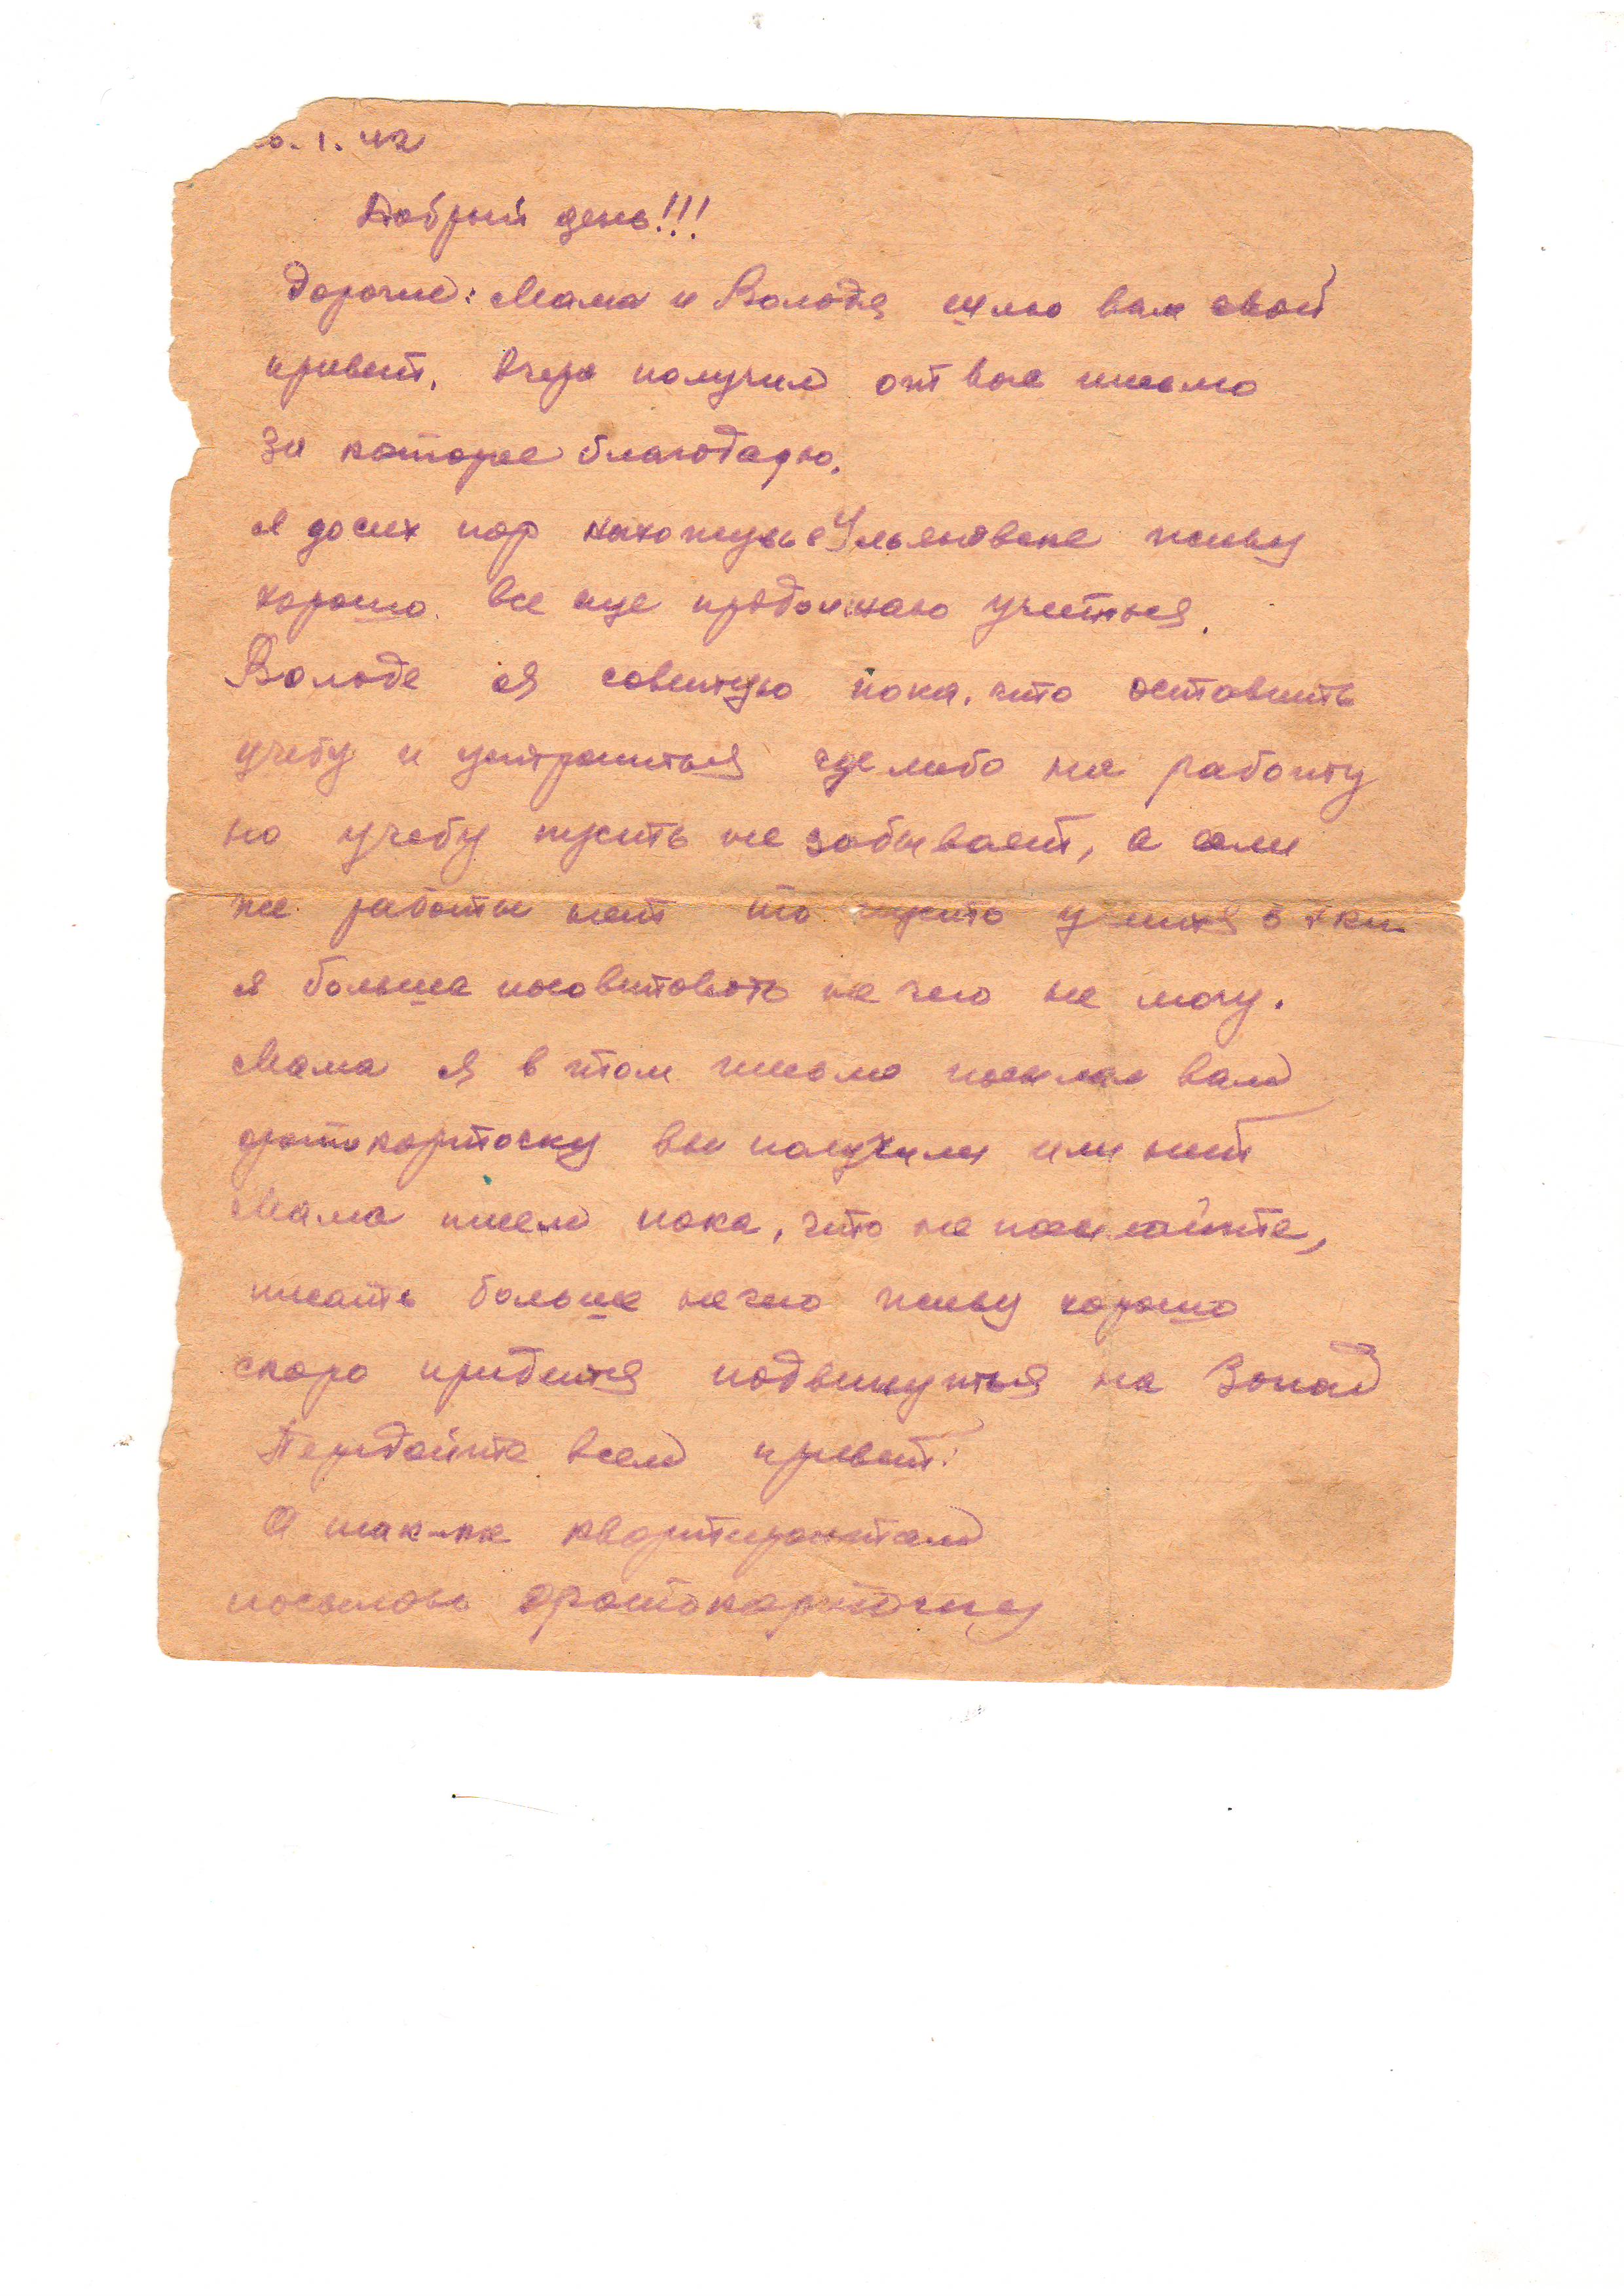 0. 1. 42
Добрый день!!!
Дорогие: Мама и Володя шлю вам свой
привет. Вчера получил от вас письмо
за которое благодарю.
я досих пор нахожусь в Ульяновске живу
хорошо. Все еще продолжаю учиться.
Володе я советую пока, что оставить
учебу и устроиться где либо на работу
но учебу пусть не забывает, а если
же работы нет то пусть учится в
я больше посоветовать не чего не могу.
Мама я в том письме посылал вам
фотокарточку вы получили или нет
Мама писем пока, что не посылайте,
писать больше нечего живу хорошо
скоро придется подвинуться на Запад
Передайте всем привет.
А так-же квартирантам
посылаю фотокарточку